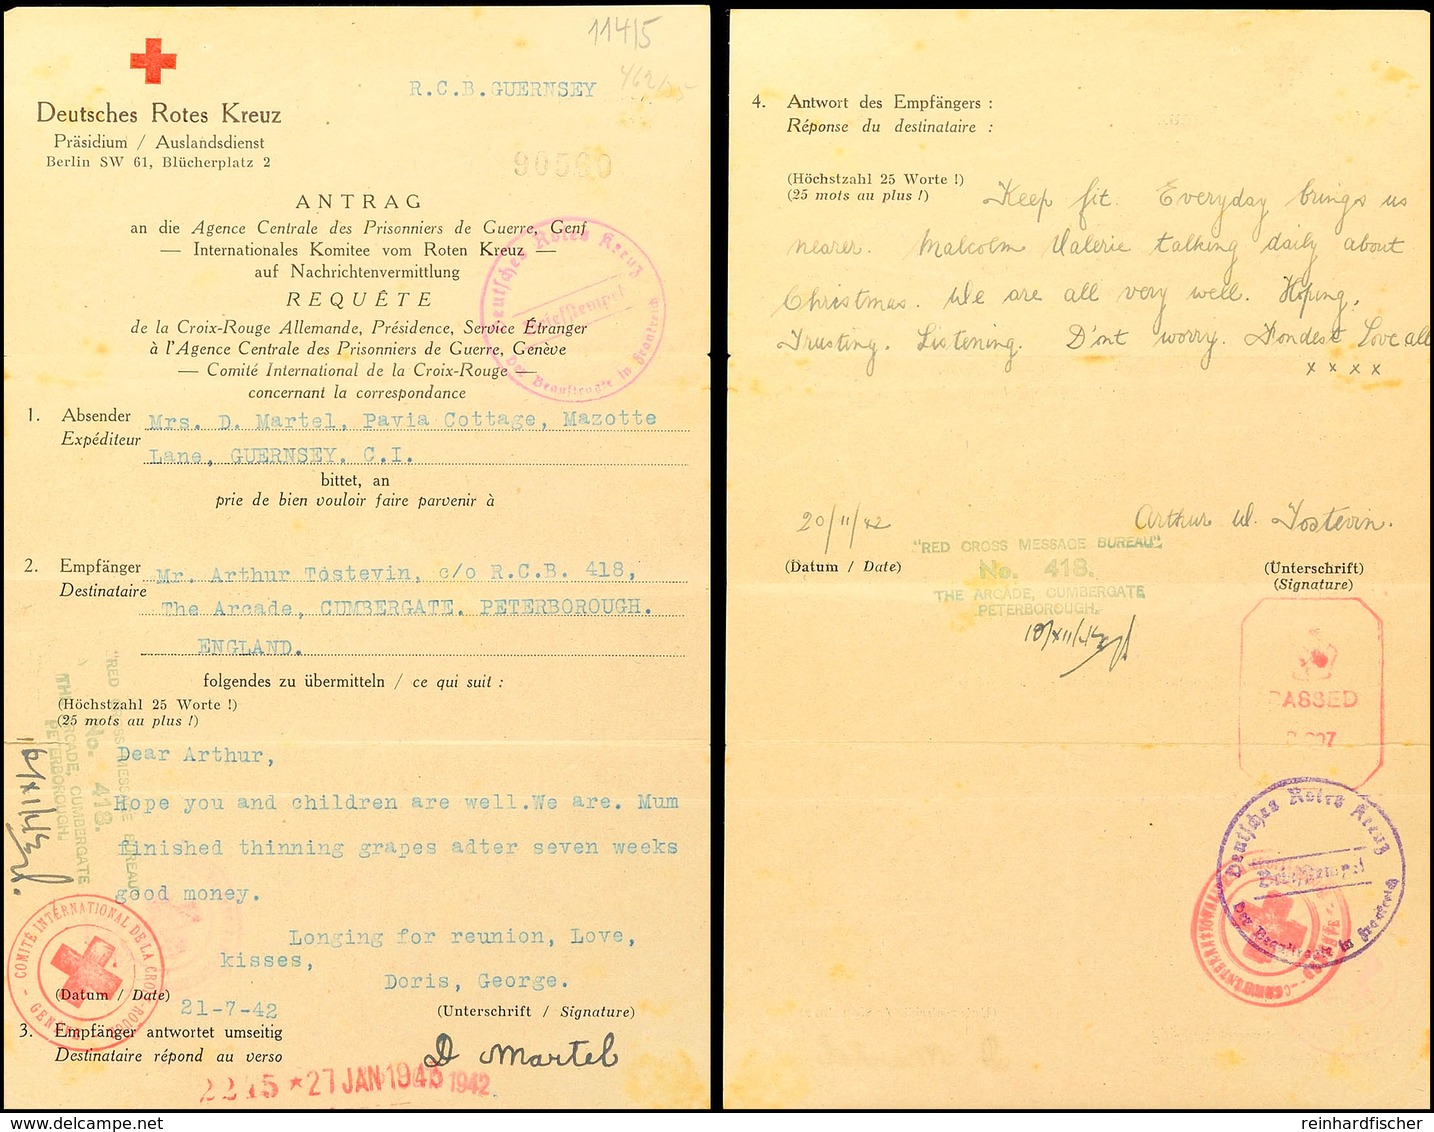 114/5
R.C.B.GUERNSEY
Deutsches Rotes Kreuz
Präsidium / Auslandsdienst
Berlin SW 61, Blücherplatz 2
90560
ANTRAG
an die Agence Centrale des Prisonniers de Guerre, Genf
— Internationales Komitee vom Roten Kreuz —
auf Nachrichtenvermittlung
REQUÊTE
de la Croix-Rouge Allemande, Présidence, Service Étranger
à l'Agence Centrale des Prisonniers de Guerre, Genève
— Comité International de la Croix-Rouge —
concernant la correspondance
Deutsches Rotes Kreuz
Briefstempel
Der Beauftragte in Frankreich
1. Absender Mrs. D. Martel, Pavia Cottage, Mazotte
Expéditeur
Lane, GUERNSEY. C.I.
bittet, an
prie de bien vouloir faire parvenir à
2. Empfänger Mr. Arthur Tostevin, c/o R.C.B. 418,
Destinataire
The Arcade, CUMBERGATE. PETERBOROUGH.
ENGLAND.
folgendes zu übermitteln / ce qui suit :
(Höchstzahl 25 Worte !)
(25 mots au plus !)
"RED CROSS MESSAGE BUREAU"
No. 418.
THE ARCADE, CUMBERGATE
PETERBOROUGH.
Dear Arthur,
Hope you and children are well.We are. Mum
finished thinning grapes adter seven weeks
good money.
Longing for reunion, Love,
kisses,
Doris, George.
COMITÉ INTERNATIONAL DE LA CROIX-ROUGE – GENÈVE –
(Datum / Date) 21-7-42 (Unterschrift / Signature)
3. Empfänger antwortet umseitig
Destinataire répond au verso
D Martel
2215 * 27 JAN 1943 1942
4. Antwort des Empfängers :
Réponse du destinataire :
(Höchstzahl 25 Worte !)
(25 mots au plus !)
Keep fit. Everyday brings us
nearer. Malcolm Valerie talking daily about
Christmas. We are all very well. Hoping.
Trusting. Listening. D'nt worry. Fondest Love all
x x x x
20/11/42 Arthur W. Tostevin.
(Datum / Date) (Unterschrift)
(Signature)
"RED CROSS MESSAGE BUREAU"
No. 418.
THE ARCADE, CUMBERGATE
PETERBOROUGH.
PASSED
Deutsches Rotes Kreuz
Briefstempel
Der Beauftragte in Frankreich
reinhardfischer